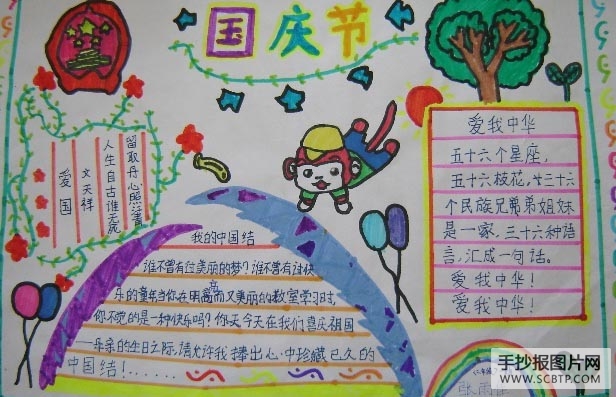 国庆节
留取丹心照汗青
人生自古谁无死
文天祥
爱国
我的中国结
谁不曾有过美丽的梦?谁不曾有过快
乐的童年当你在明亮而又美丽的教室学习时,
你不觉的是一种快乐吗?你天今天在我们喜庆祖国
亲的生日之际,请允许我捧出心中珍藏已久的
中国结!......
爱我中华
五十六个星座,
五十六枝花,廿三十六
个民族兄弟弟姐妹
是一家,三十六种语
言,汇成一句话。
爱我中华!
爱我中华!
张雨
手抄报图片网
WWW.SCBTP.COM